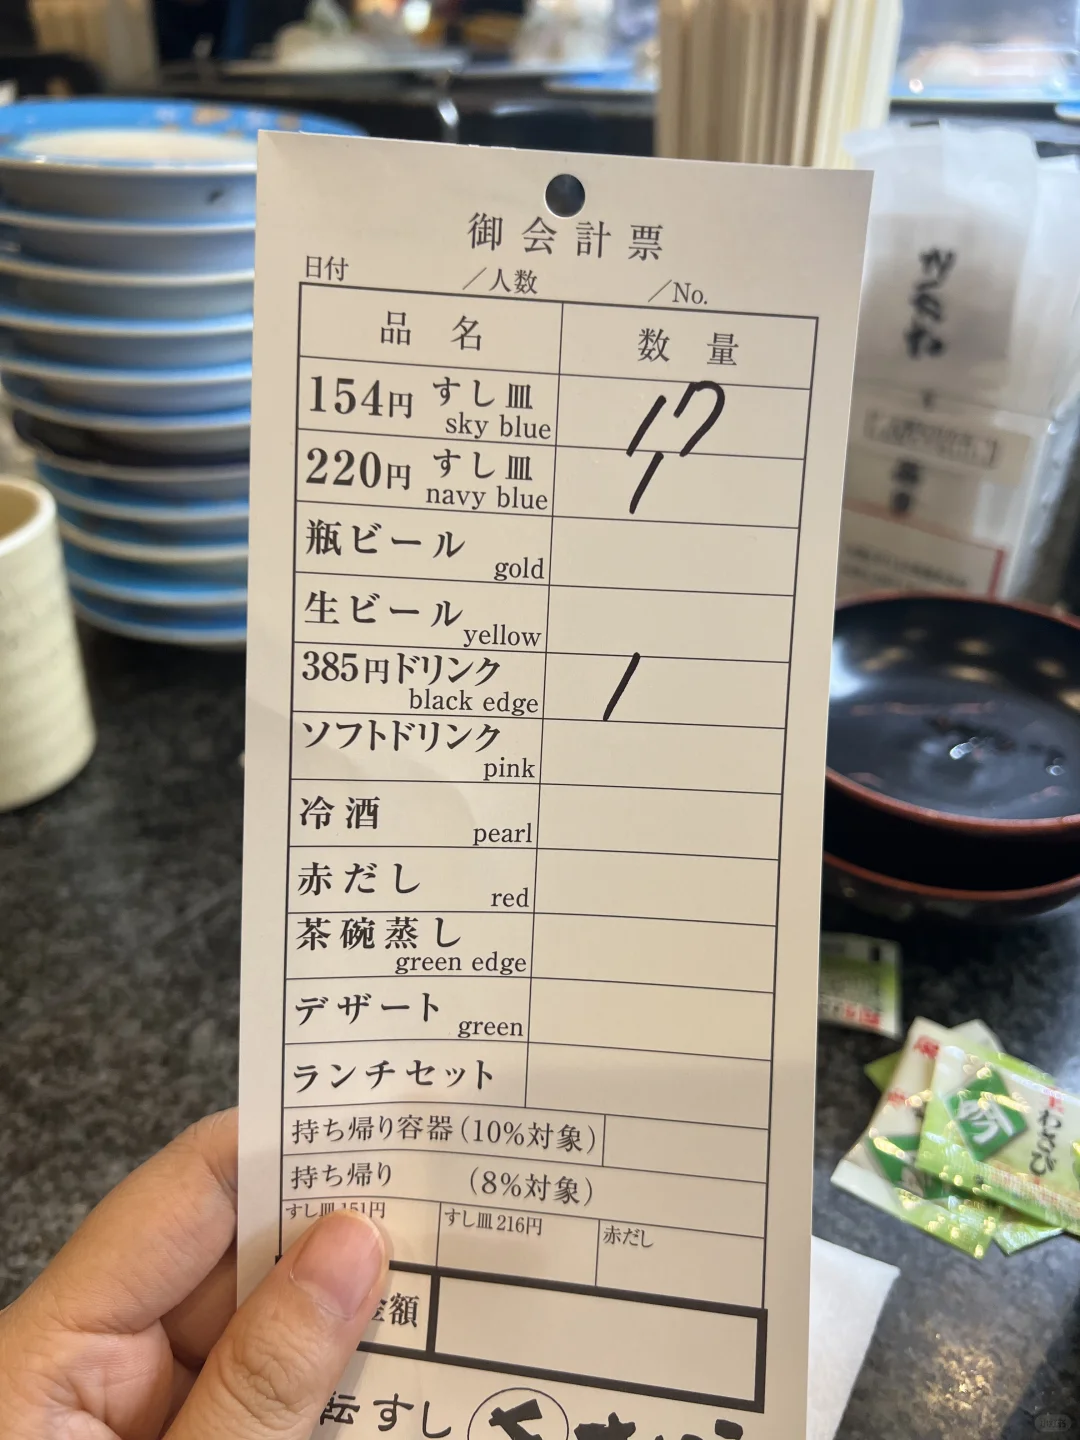 御会計票
日付 ／人数 ／No.
品名 数量
154円 すし皿 sky blue 17
220円 すし皿 navy blue 1
瓶ビール gold
生ビール yellow
385円ドリンク black edge 1
ソフトドリンク pink
冷酒 pearl
赤だし red
茶碗蒸し green edge
デザート green
ランチセット
持ち帰り容器(10%対象)
持ち帰り (8%対象)
すし皿151円 すし皿216円 赤だし
金額
転すし
わさび